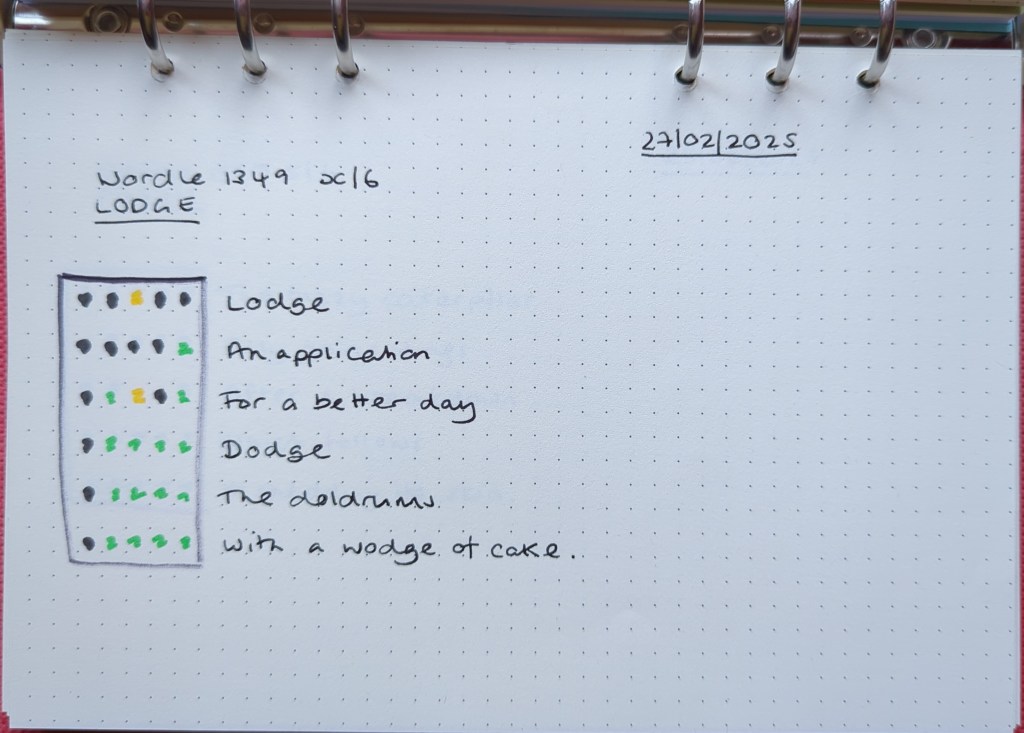 27/02/2025
Wordle 1349 x/6
LODGE
Lodge
An application
For a better day
Dodge
The doldrums
with a wodge of cake.